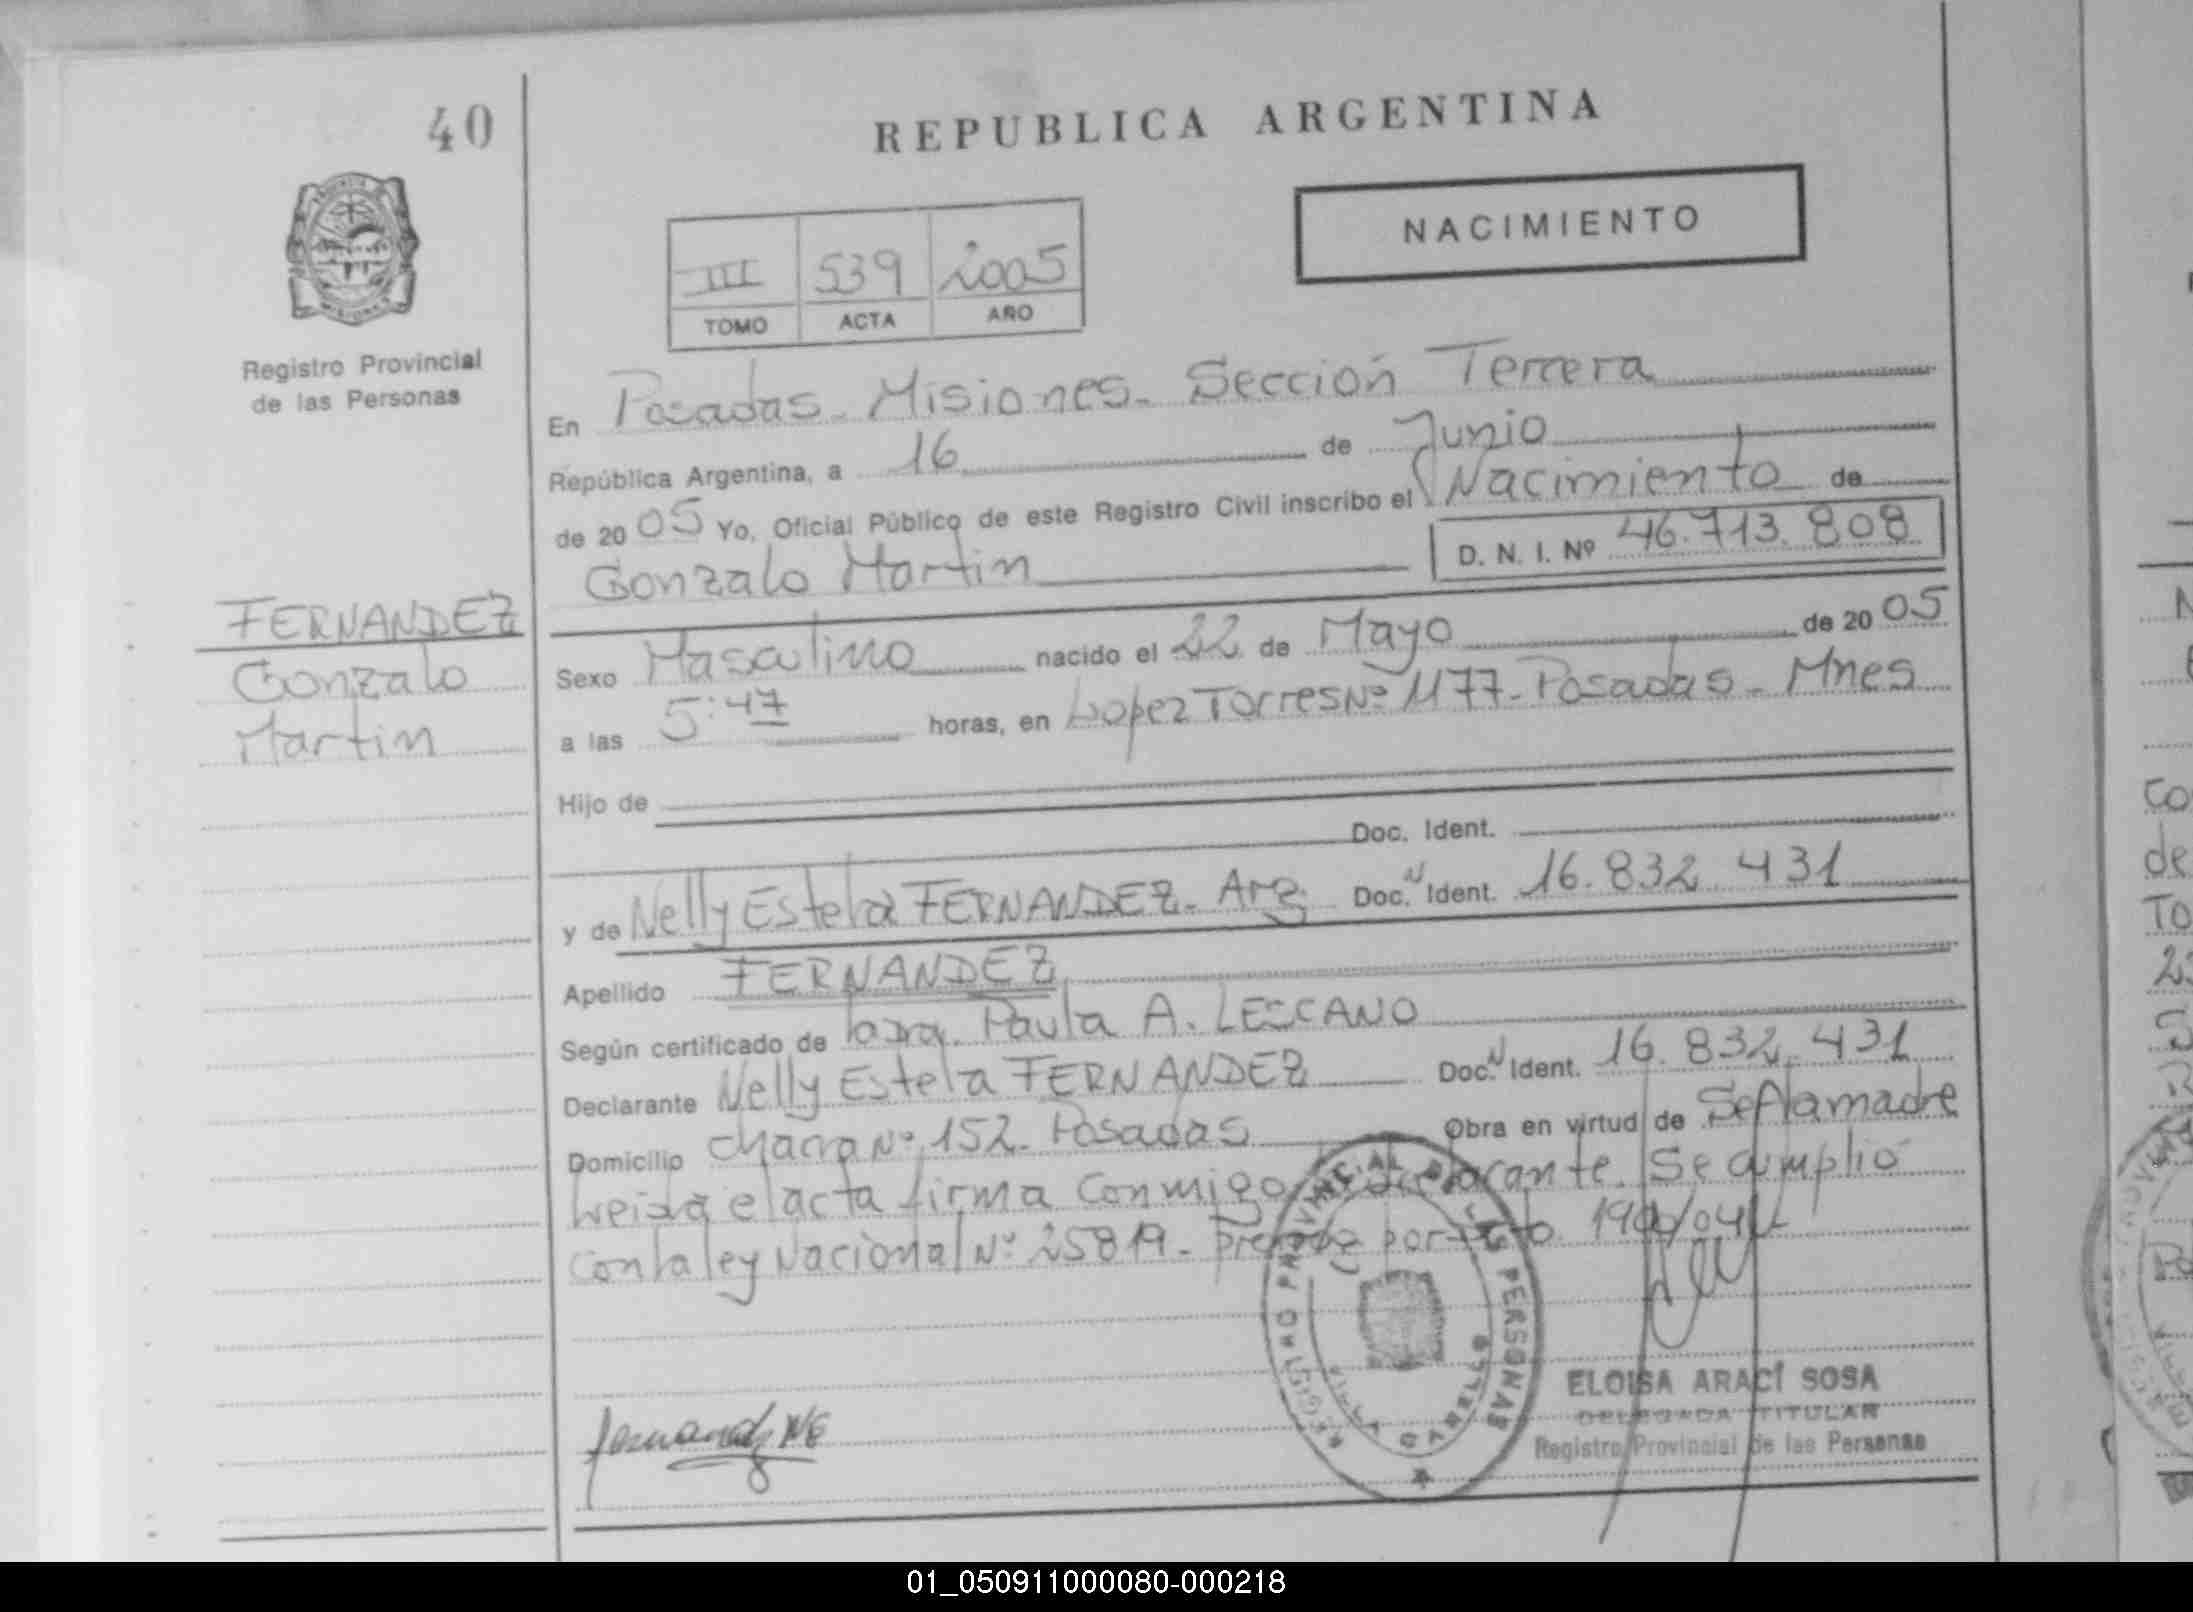 40
REPUBLICA ARGENTINA
NACIMIENTO
III 539 2005
TOMO ACTA AÑO
Registro Provincial
de las Personas
En Posadas - Misiones - Sección Tercera
República Argentina, a 16 de Junio
de 2005 Yo, Oficial Público de este Registro Civil inscribo el Nacimiento de
Gonzalo Martin D. N. I. Nº 46.713.808
FERNANDEZ
Gonzalo
Martin
Sexo Masculino nacido el 22 de Mayo de 2005
a las 5:47 horas, en Lopez Torres Nº 1177 - Posadas - Mnes
Hijo de
Doc. Ident.
y de Nelly Estela FERNANDEZ - Arg Doc. N Ident. 16.832.431
Apellido FERNANDEZ
Según certificado de Paula A. LESCANO
Declarante Nelly Estela FERNANDEZ Doc. N Ident. 16.832.431
Domicilio chacra Nº 152 - Posadas Obra en virtud de Ser la madre
Leida el acta firma conmigo declarante. Se cumplió
con la ley Nacional Nº 25819 -
REGISTRO PROVINCIAL DE LAS PERSONAS
VILLA CABELLO
ELOISA ARACÍ SOSA
DELEGADA TITULAR
Registro Provincial de las Personas
Fernandez NE
01_050911000080-000218